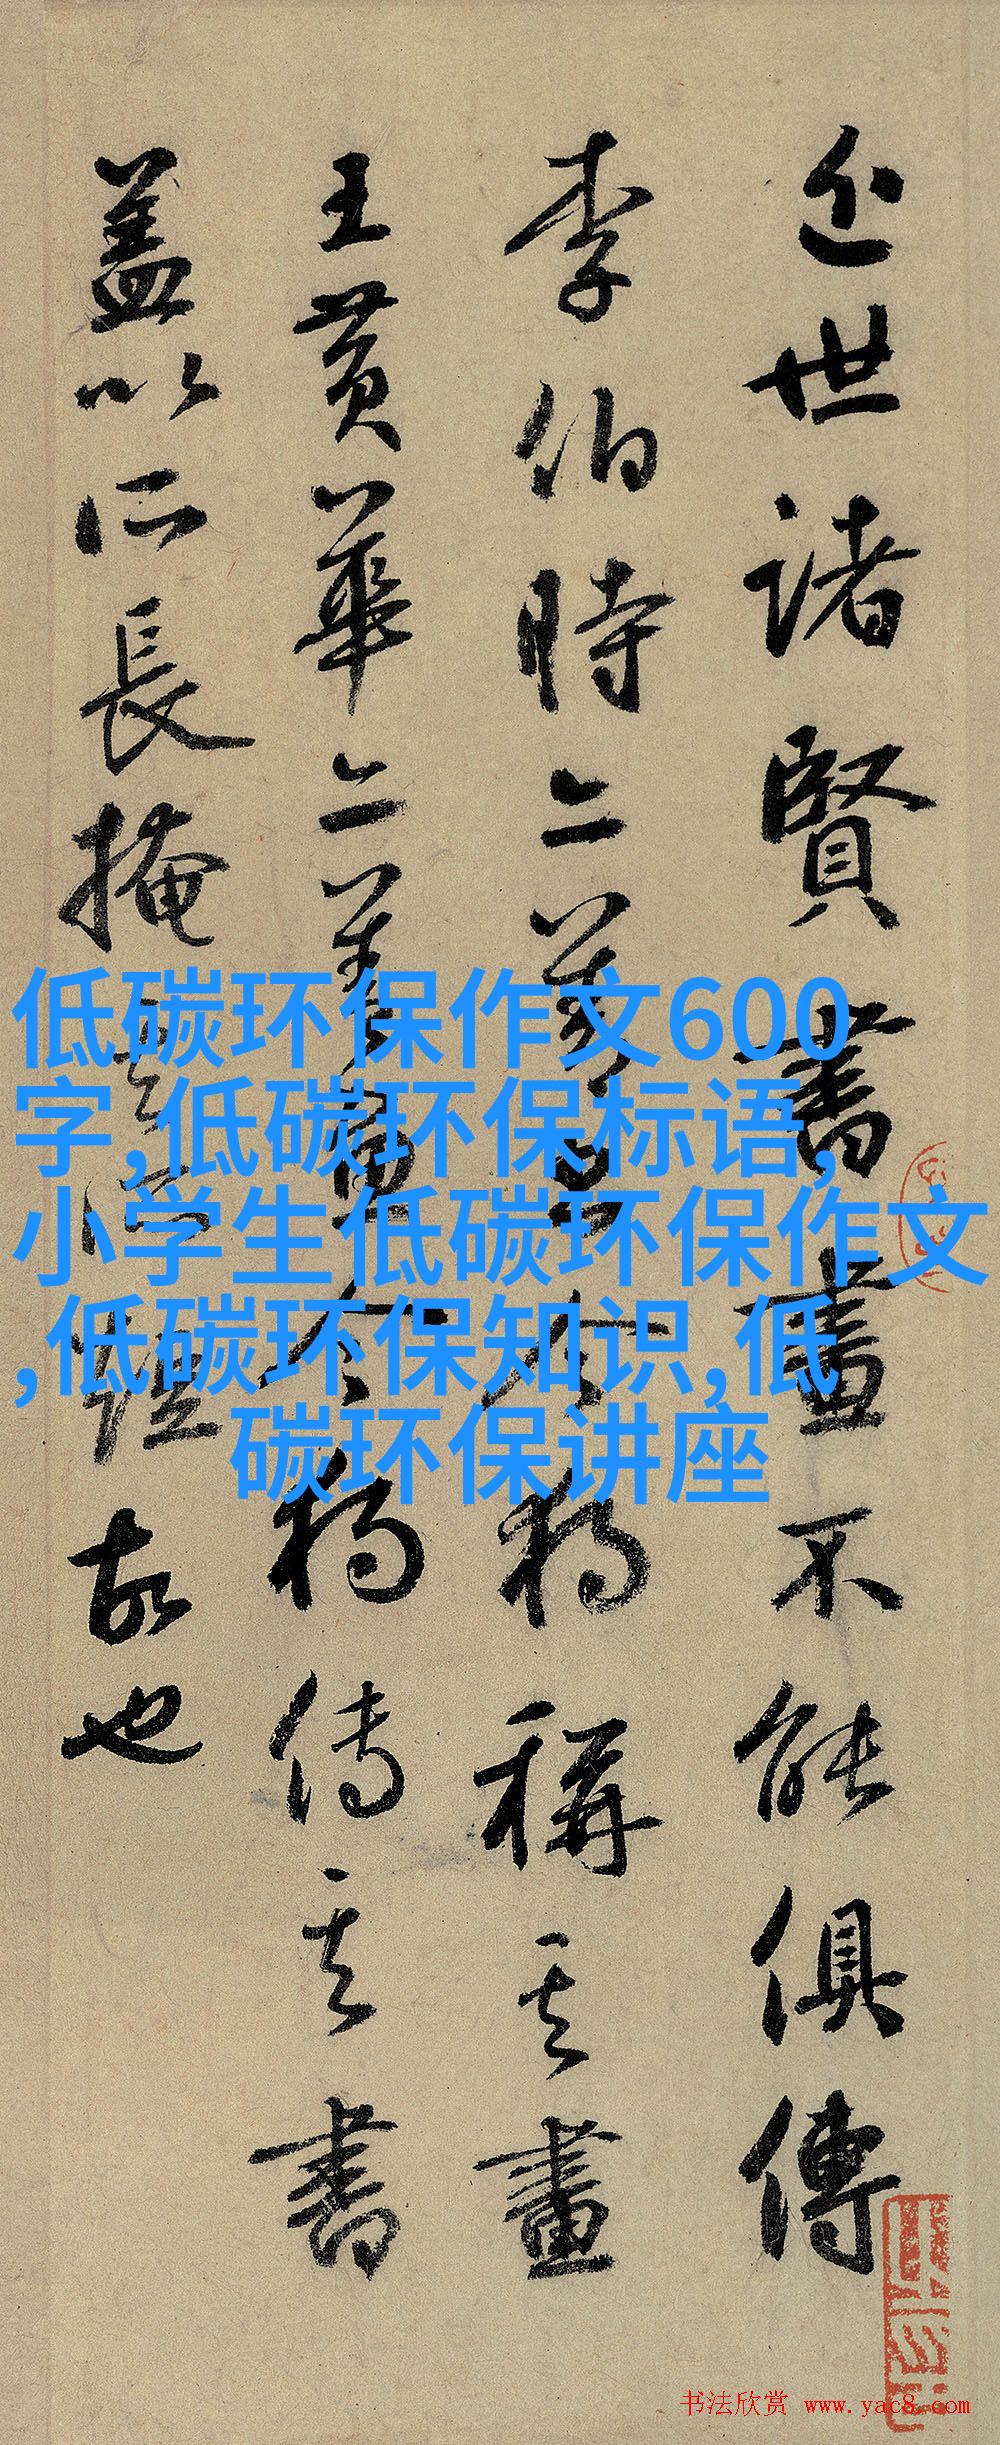 近世諸賢書畫不能俱傳
李伯時二今獨稱其畫
王黃華二今獨傳其書
蓋以所長掩其所短故也
低碳环保作文600
字,低碳环保标语,
小学生低碳环保作文
,低碳环保知识,低
碳环保讲座
书法欣赏 www.yac8.com